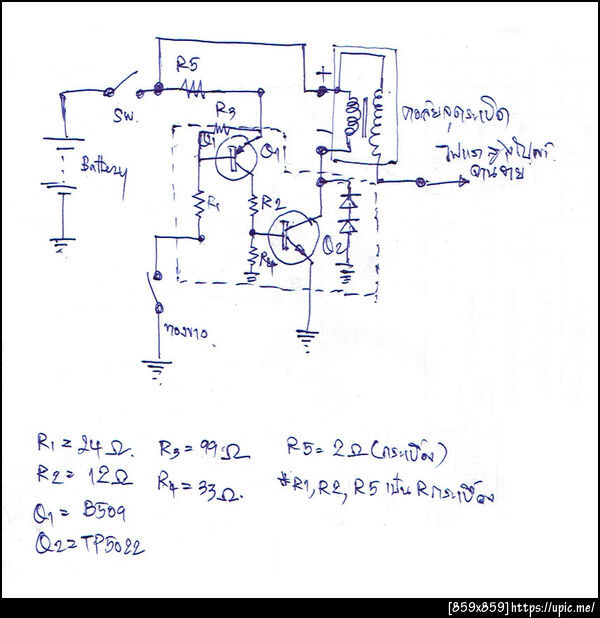 R5
SW.
R3
Q1
Battery
R1
R2
Q2
R4
+
คอยล์จุดระเบิด
ไฟแรงสูงไปเข้า
จานจ่าย
ทองขาว
R1 = 24 Ω. R3 = 99 Ω R5 = 2 Ω (กระเบื้อง)
R2 = 12 Ω R4 = 33 Ω. *R1, R2, R5 เป็น R กระเบื้อง
Q1 = B509
Q2 = TP5022
[859x859] https://upic.me/